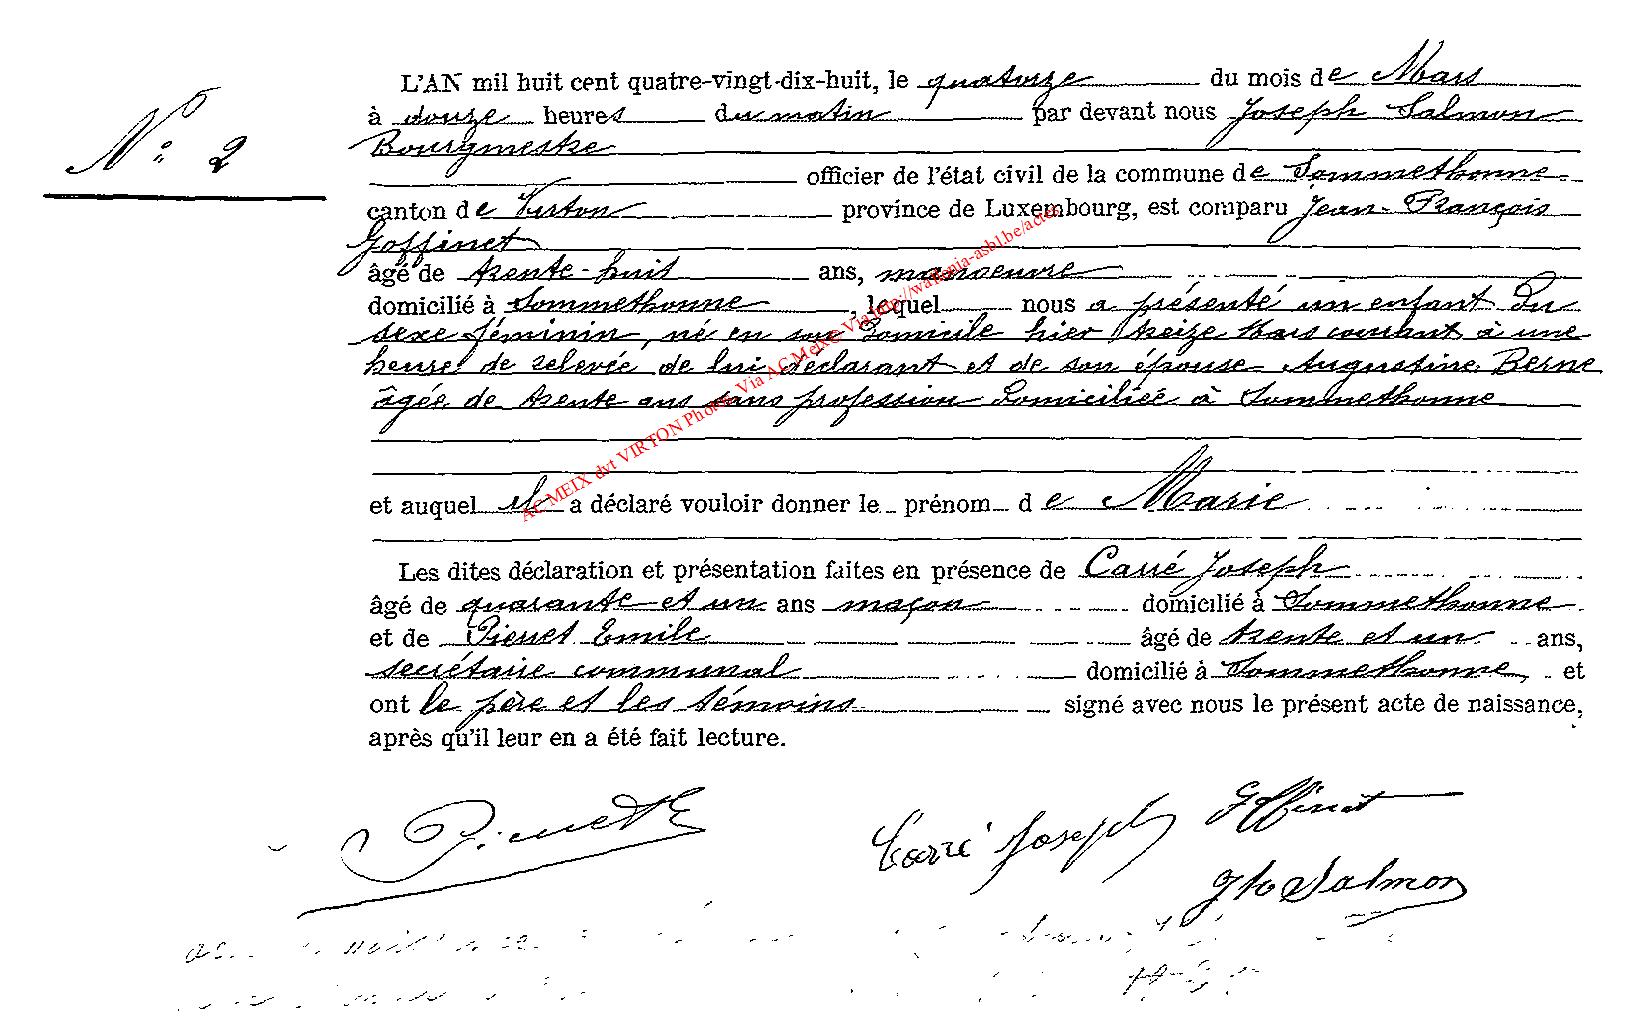 N° 2
L'AN mil huit cent quatre-vingt-dix-huit, le quatorze du mois de Mars
à douze heures du matin par devant nous Joseph Salmon
Bourgmestre
officier de l'état civil de la commune de Sommethonne
canton de Virton province de Luxembourg, est comparu Jean-François
Goffinet
âgé de trente-huit ans, manoeuvre
domicilié à Sommethonne, lequel nous a présenté un enfant du
sexe féminin, né en son domicile hier treize Mars courant à une
heure de relevée de lui déclarant et de son épouse Augustine Berne
âgée de trente ans sans profession domiciliée à Sommethonne
et auquel il a déclaré vouloir donner le prénom de Marie
Les dites déclaration et présentation faites en présence de Carré Joseph
âgé de quarante et un ans maçon domicilié à Sommethonne
et de Pierret Emile âgé de trente et un ans,
secrétaire communal domicilié à Sommethonne, et
ont le père et les témoins signé avec nous le présent acte de naissance,
après qu'il leur en a été fait lecture.
AC MEIX dvt VIRTON Photos Via AC Meix - Via http://wallonia-asbl.be/actes
Carré Joseph Goffinet
Jh Salmon